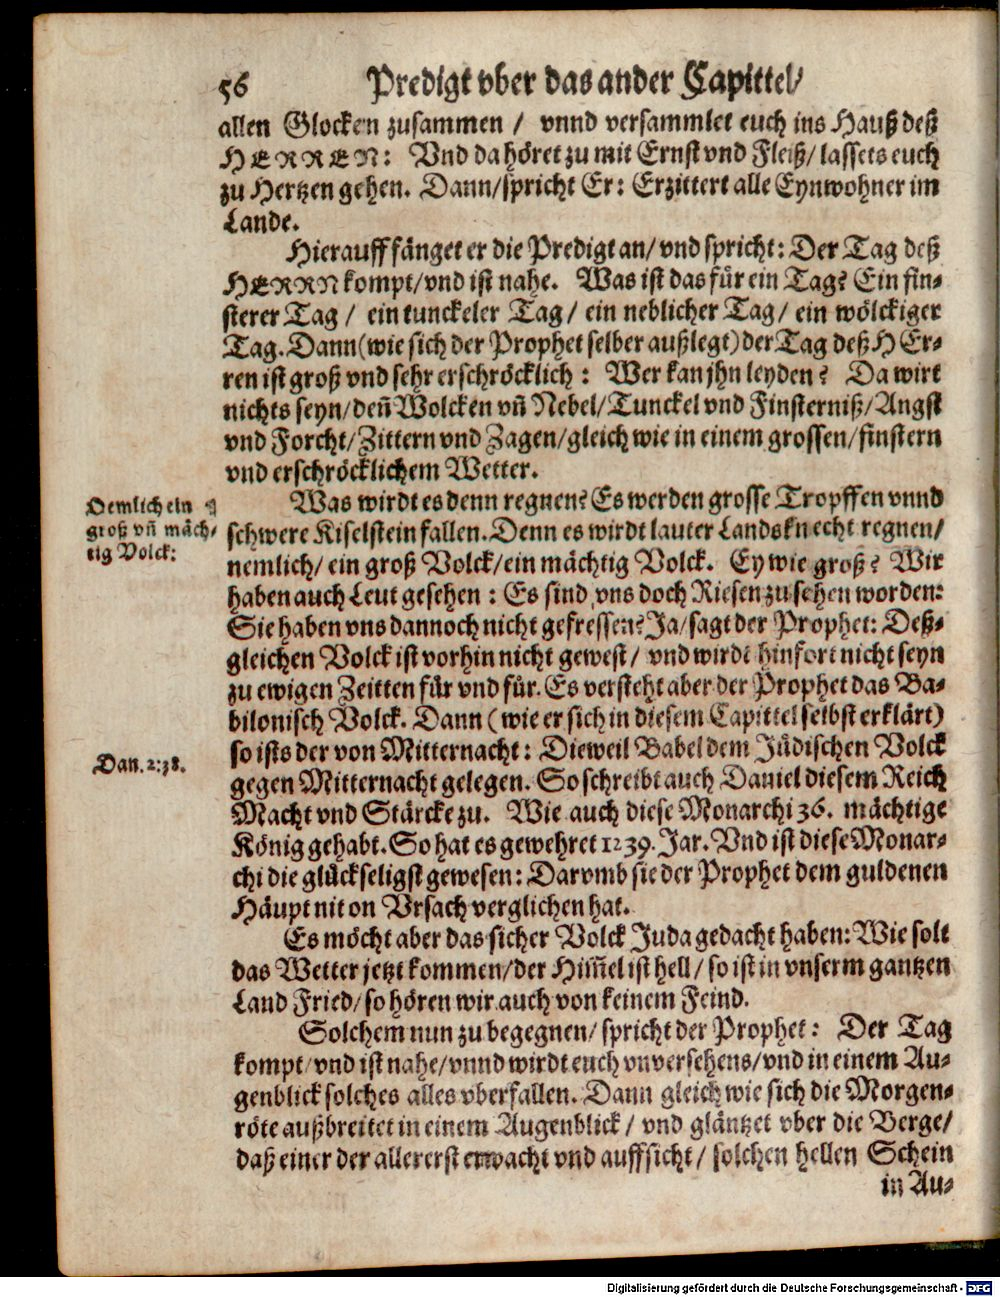 56 Predigt vber das ander Capittel/
allen Glocken zusammen / vnnd versammlet euch ins Hauß deß
HERREN: Vnd da höret zu mit Ernst vnd Fleiß/ lassets euch
zu Hertzen gehen. Dann/spricht Er: Erzittert alle Eynwohner im
Lande.
Hierauff fänget er die Predigt an/ vnd spricht: Der Tag deß
HERRN kompt/vnd ist nahe. Was ist das für ein Tag? Ein fin-
sterer Tag / ein tunckeler Tag/ ein neblicher Tag/ ein wölckiger
Tag. Dann (wie sich der Prophet selber außlegt) der Tag deß HEr-
ren ist groß vnd sehr erschröcklich : Wer kan jhn leyden? Da wirt
nichts seyn/ deñ Wolcken vñ Nebel/Tunckel vnd Finsterniß/Angst
vnd Forcht/Zittern vnd Zagen/gleich wie in einem grossen/finstern
vnd erschröcklichem Wetter.
Nemlich ein
groß vñ mäch-
tig Volck:
Was wirdt es denn regnen? Es werden grosse Tropffen vnnd
schwere Kiselstein fallen. Denn es wirdt lauter Landsknecht regnen/
nemlich/ ein groß Volck/ein mächtig Volck. Ey wie groß? Wir
haben auch Leut gesehen : Es sind vns doch Riesen zu sehen worden:
Sie haben vns dannoch nicht gefressen? Ja/sagt der Prophet: Deß-
gleichen Volck ist vorhin nicht gewest/ vnd wirdt hinfort nicht seyn
zu ewigen Zeitten für vnd für. Es versteht aber der Prophet das Ba-
bilonisch Volck. Dann (wie er sich in diesem Capittel selbst erklärt)
so ists der von Mitternacht: Dieweil Babel dem Jüdischen Volck
Dan. 2:38.
gegen Mitternacht gelegen. So schreibt auch Daniel diesem Reich
Macht vnd Stärcke zu. Wie auch diese Monarchi 36. mächtige
König gehabt. So hat es gewehret 1239. Jar. Vnd ist diese Monar-
chi die glückseligst gewesen: Darvmb sie der Prophet dem guldenen
Häupt nit on Vrsach verglichen hat.
Es möcht aber das sicher Volck Juda gedacht haben: Wie solt
das Wetter jetzt kommen/der Him̃el ist hell/ so ist in vnserm gantzen
Land Fried/so hören wir auch von keinem Feind.
Solchem nun zu begegnen/ spricht der Prophet: Der Tag
kompt/vnd ist nahe/vnnd wirdt euch vnversehens/vnd in einem Au-
genblick solches alles vberfallen. Dann gleich wie sich die Morgen-
röte außbreitet in einem Augenblick/ vnd gläntzet vber die Berge/
daß einer der allererst erwacht vnd auffsicht/ solchen hellen Schein
in Au-
Digitalisierung gefördert durch die Deutsche Forschungsgemeinschaft - DFG